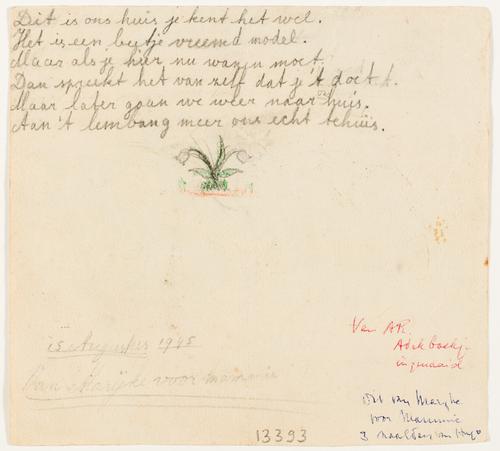 Dit is ons huis je kent het wel.
Het is een beetje vreemd model.
Maar als je hier nu wonen moet.
Dan spreekt het van zelf dat je 't doet.
Maar later gaan we weer naar huis.
Aan 't lembang meer ons echt tehuis.
15 Augustus 1945
Van Marijke voor mammie
Van AR.
ingenaaid
van Marijke
voor Mammie
3
13393